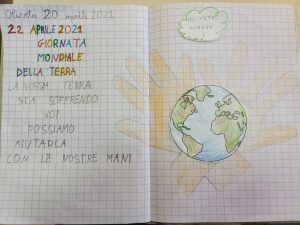 Oliveto 20 aprile 2021
22 APRILE 2021
GIORNATA
MONDIALE
DELLA TERRA
LA NOSTRA TERRA
STA SOFFRENDO
NOI
POSSIAMO
AIUTARLA
CON LE NOSTRE MANI
OLIVETO
CLASSE
1